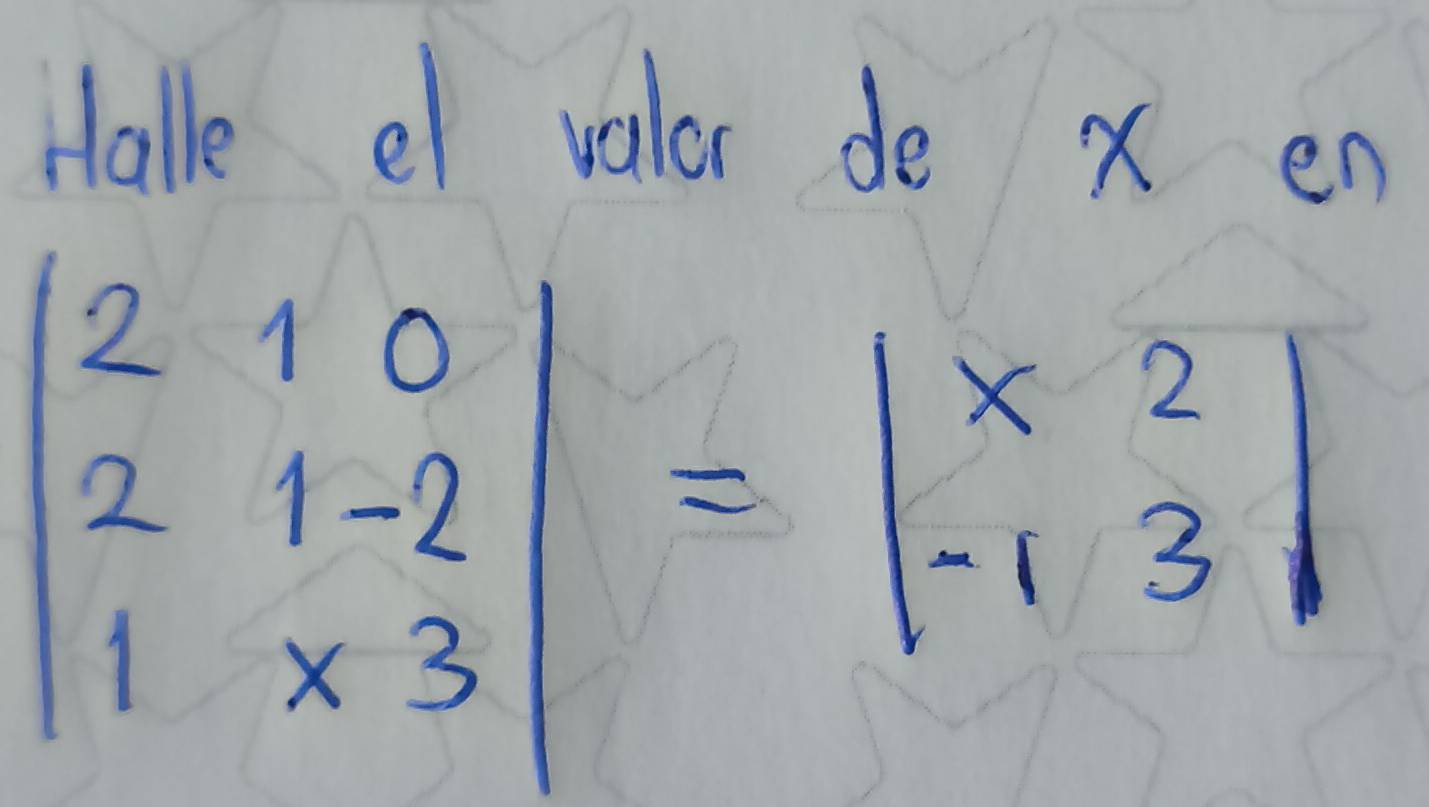 Halle el valor de x en
| 2 1 0 | | x 2 |
| 2 1 -2 | = | -1 3 |
| 1 x 3 |